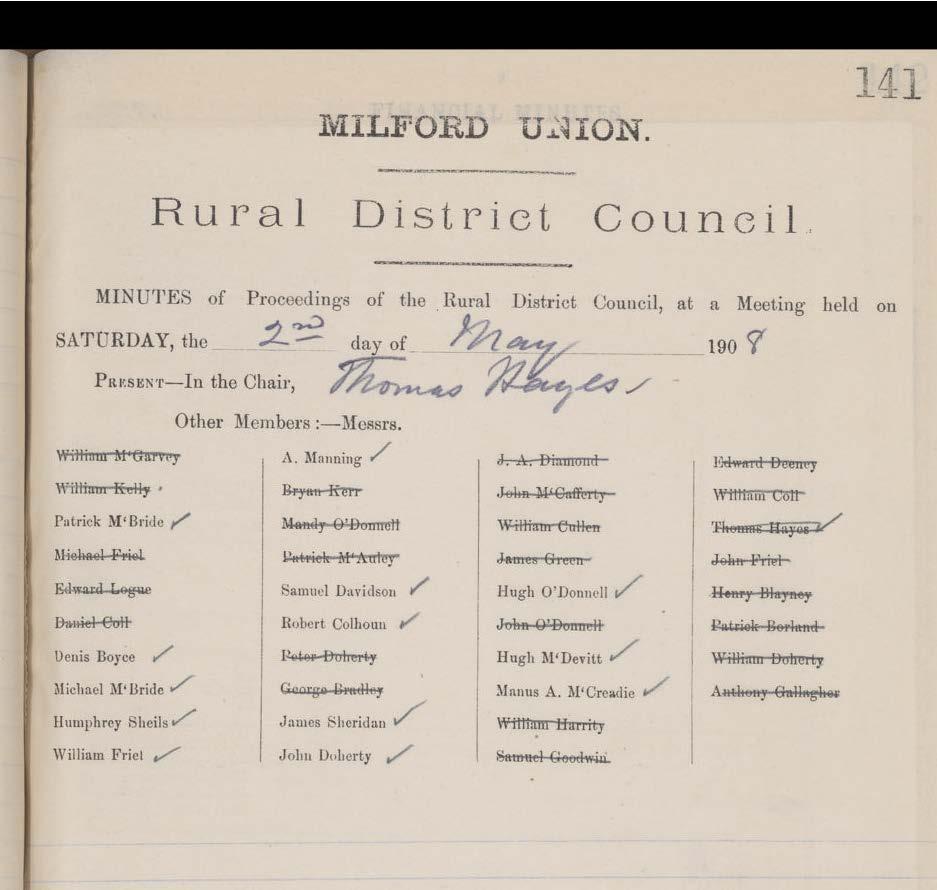 141
MILFORD UNION.
Rural District Council.
MINUTES of Proceedings of the Rural District Council, at a Meeting held on
SATURDAY, the 2nd day of May 1908
PRESENT—In the Chair, Thomas Hayes
Other Members :—Messrs.
William M‘Garvey
William Kelly
Patrick M‘Bride ✓
Michael Friel
Edward Logue
Daniel Coll
Denis Boyce ✓
Michael M‘Bride ✓
Humphrey Sheils ✓
William Friel ✓
A. Manning ✓
Bryan Kerr
Mandy O’Donnell
Patrick M‘Auley
Samuel Davidson ✓
Robert Colhoun ✓
Peter Doherty
George Bradley
James Sheridan ✓
John Doherty ✓
J. A. Diamond
John M‘Cafferty
William Cullen
James Green
Hugh O’Donnell ✓
John O’Donnell
Hugh M‘Devitt ✓
Manus A. M‘Creadie ✓
William Harrity
Samuel Goodwin.
Edward Deeney
William Coll
Thomas Hayes ✓
John Friel
Henry Blayney
Patrick Borland
William Doherty
Anthony Gallagher